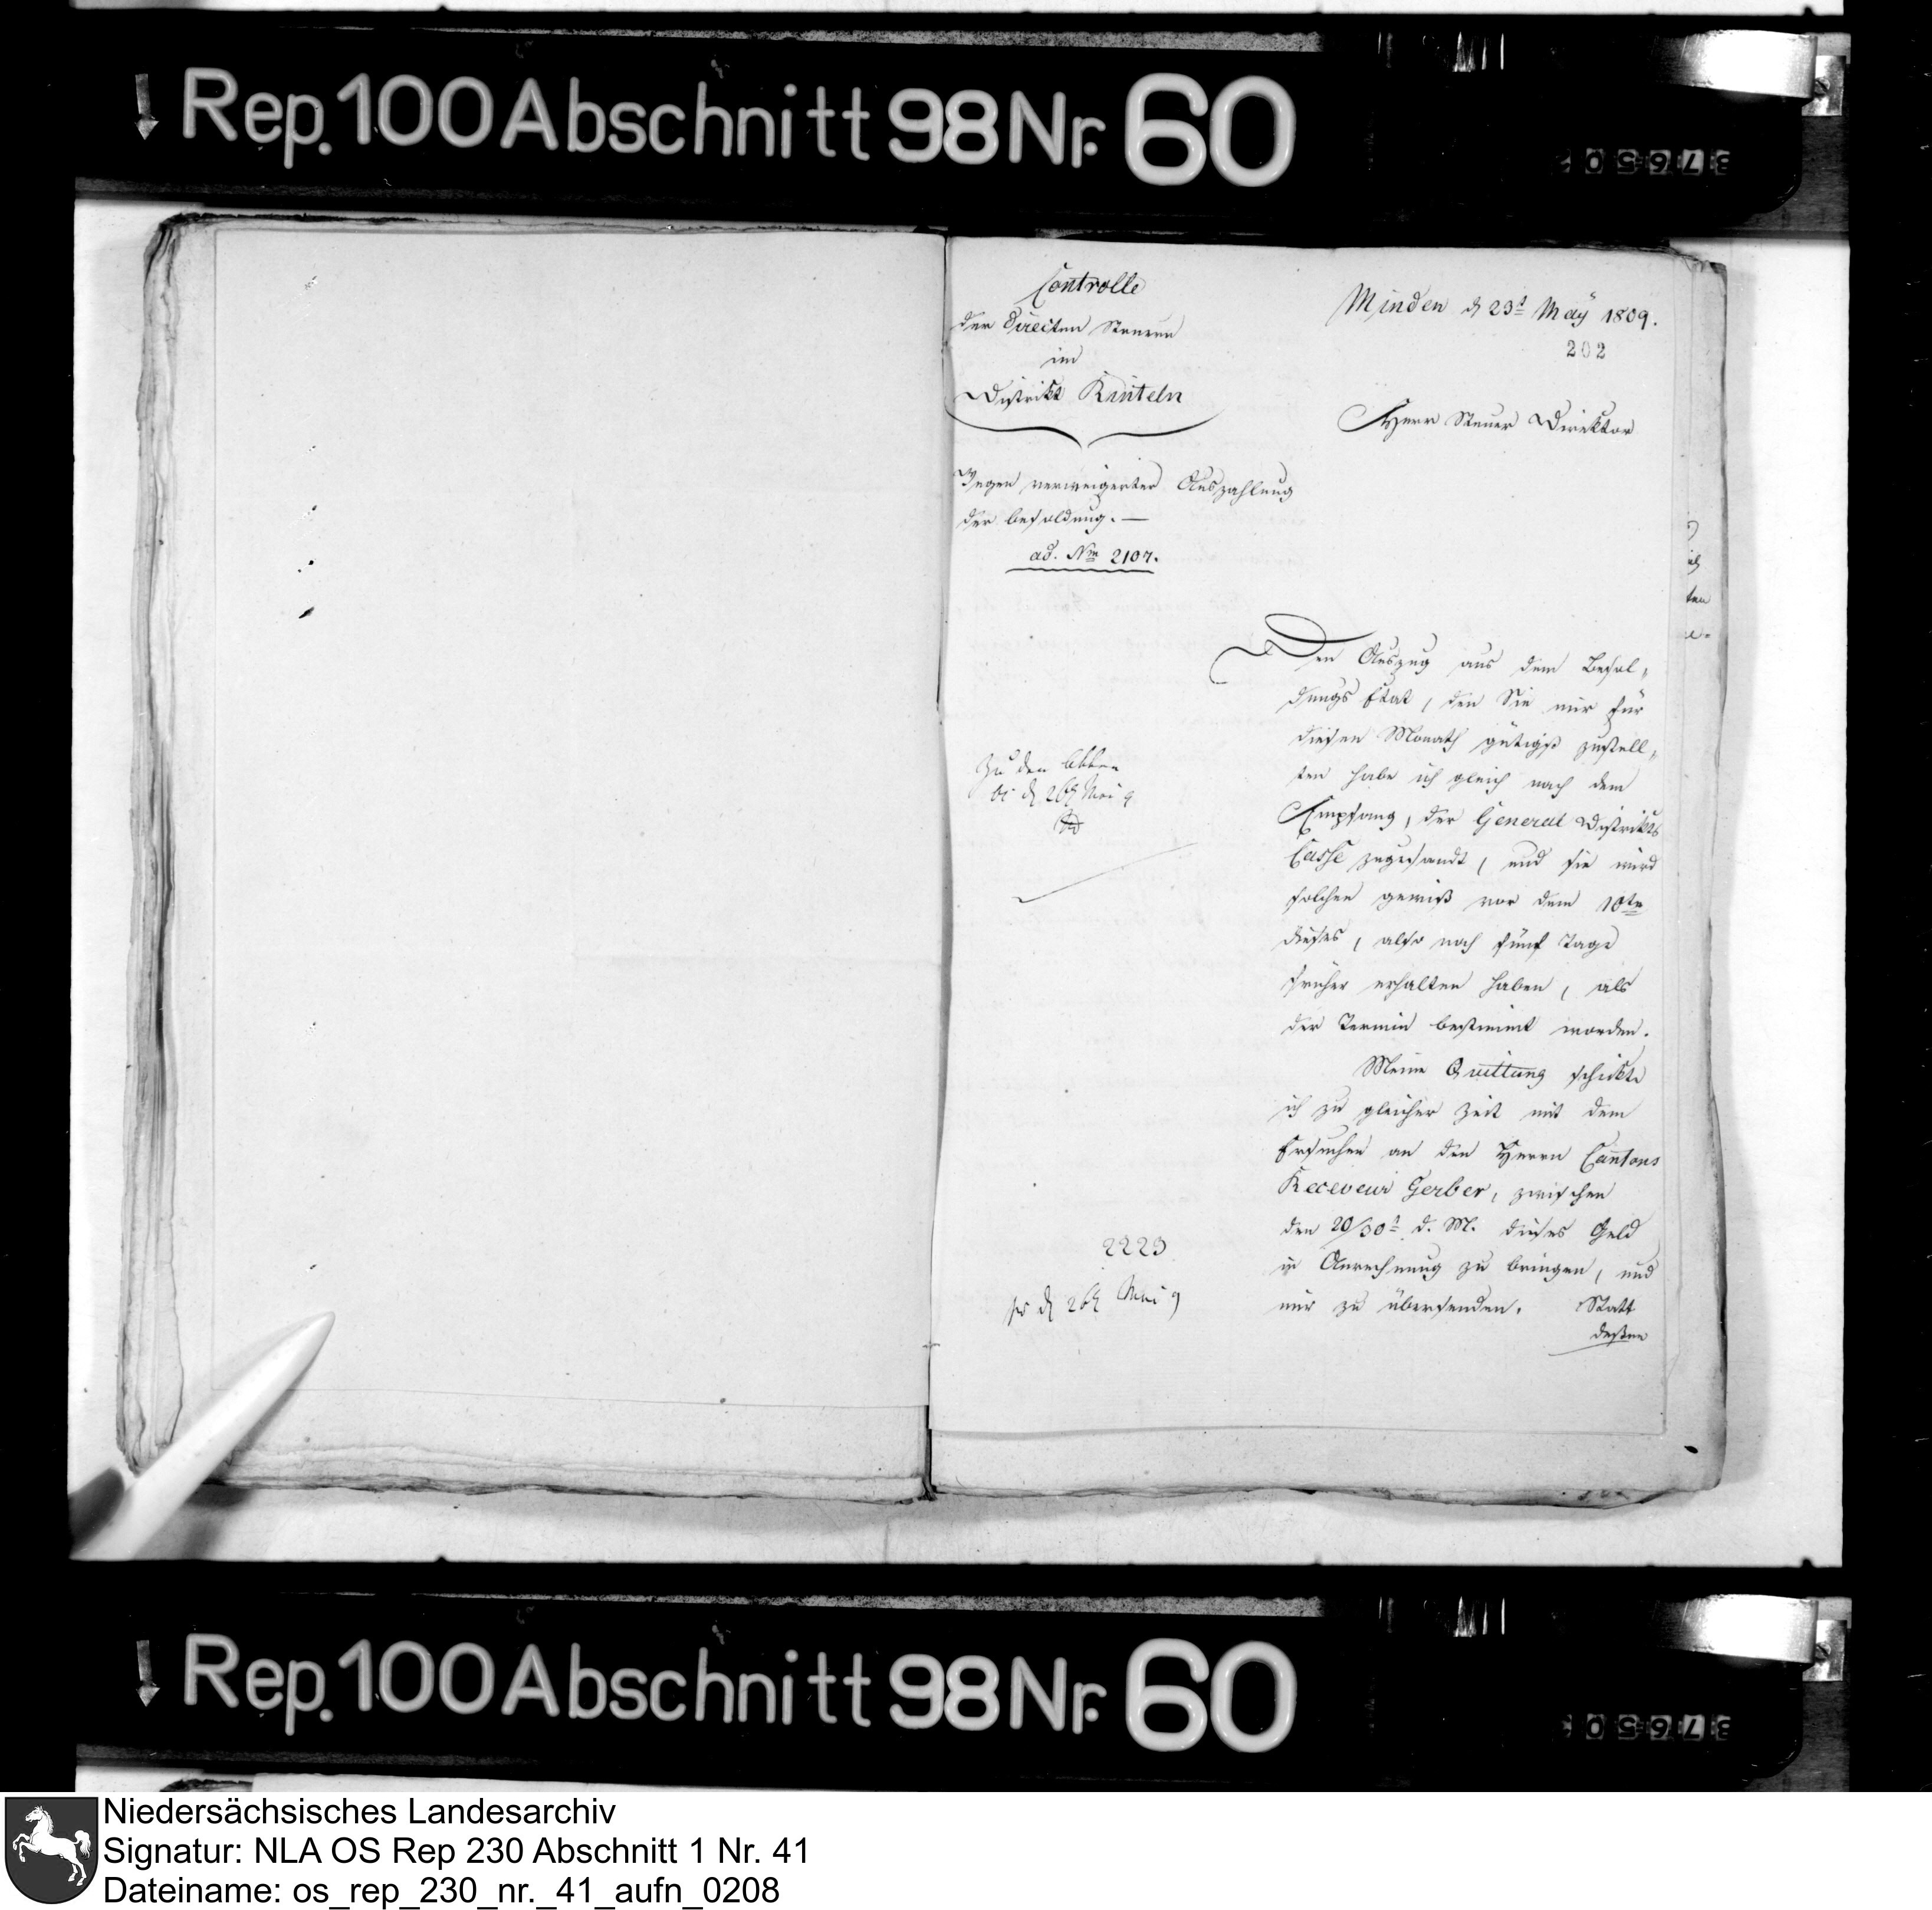 Rep. 100 Abschnitt 98 Nr. 60
37650
Controlle
der Directen Steuern
im
Distrikt Rinteln
Wegen verweigerter Auszahlung
der besoldung. —
ad. Nro 2107.
Minden d 23t May 1809.
202
Herr Steuer Direktor
Den Auszug aus dem Besol„
dungs Etat, den Sie mir für
diesen Monath gütigst zustell„
ten habe ich gleich nach dem
Empfang, der General Distrikts
Casse zugesandt, und sie wird
solchen gewiß vor dem 10ten
dieses, also noch fünf Tage
früher erhalten haben, als
der Termin bestimmt worden.
Meine Quittung schickte
ich zu gleicher Zeit mit dem
Ersuchen an den Herrn Cantons
Receveur Gerber, zwischen
den 20/30t d. M. dieses Geld
in Anrechnung zu bringen, und
mir zu übersenden. Statt
deßen
zu den
d 26t Mai 9
2223
pr d 26t Mai 9
ten
Rep. 100 Abschnitt 98 Nr. 60
37650
Niedersächsisches Landesarchiv
Signatur: NLA OS Rep 230 Abschnitt 1 Nr. 41
Dateiname: os_rep_230_nr._41_aufn_0208